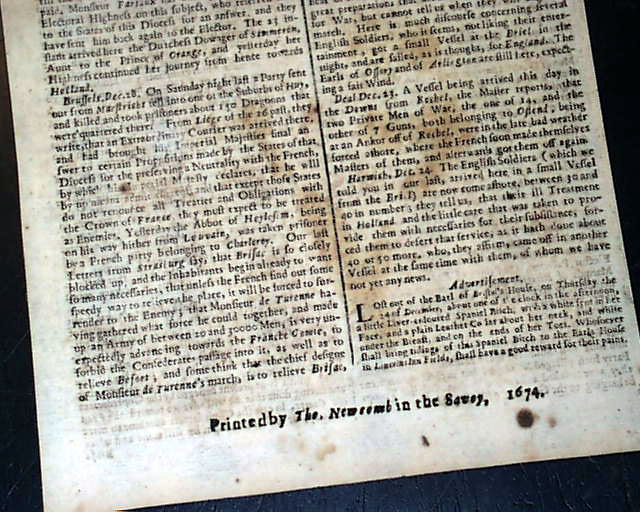 paid. Monsieur
Electoral Highness on this subject, who referred
to the States of this Diocess for an answer, and they
have sent him back again to the Elector. The 23 in-
stant arrived here the Dutchess Dowager of Simmeren,
Aunt to the Prince of Orange, and yesterday her
Highness continued her journey from hence towards
Holland.
Brussels, Dec. 28. On Saturday night last a Party sent
out from Mastricht fell into one of the Suburbs of Huy,
and killed and took prisoners about 150 Dragoons that
were quartered there. From Liege of the 26 past, they
write, that an Extraordinary Courier was arrived there,
and had brought his Imperial Majesties final an-
swer to certain Propositions made by the States of that
Diocess for the preserving a Neutrality with the French;
by which his Majesty declares, that he will
by no means and that except those States
do not renounce all Treaties and Obligations with
the Crown of France, they must expect to be treated
as Enemies. Yesterday the Abbot of Heylesim, being
on his way hither from Louvain, was taken prisoner
by a French party belonging to Charleroy. Our last
Letters from Strasburg say, that Brisac is so closely
blocked up, and the Inhabitants begin already to want
so many necessaries, that unless the French find out some
speedy way to relieve the place, it will be forced to sur-
render to the Enemy; that Monsieur de Turenne ha-
ving gathered what force he could together, and made
up an Army of between 20 and 30000 Men, is very un-
expectedly advancing towards the Franche Comte, to
forbid the Confederates passage into it, as well as to
relieve Befort, and some think that the chief designe
of Monsieur de Turenne's march, is to relieve Brisac,
great preparations
for War, but cannot tell us when they
march. Here is much discourse concerning several
English Soldiers, who it seems, not liking their enter-
tainment, got a small Vessel at the Briel in the
night, and are sailed, as is thought, for England. The
Earls of Ossory and of Arlington are still here, expect-
ing a fair Wind.
Deal Dec. 23. A Vessel being arrived this day in
the Downs from Rochel, the Master reports, that
two Private Men of War, the one of 14, and the
other of 7 Guns, both belonging to Ostend, being
at an Ankor off of Rochel, were in the late bad weather
forced ashore, where the French soon made themselves
Masters of them, and afterwards got them off again.
Harwich, Dec. 24. The English Soldiers (which we
told you in our last, arrived here in a small Vessel
from the Bril) are now come ashore, between 30 and
40 in number; they tell us, that the ill Treatment
in Holland and the little care that was taken to pro-
vide them with necessaries for their subsistance, for-
ced them to desert that service, as it hath done about
40 or 50 more, who, they affirm, came off in another
Vessel at the same time with them, of whom we have
not yet any news.
Advertisement.
Lost out of the Earl of Bristol's House, on Thursday the
24 of December, about one of the clock in the afternoon,
a little Liver-coloured Spaniel Bitch, with a white list in her
Face, and a plain Leather Collar about her neck, and white
under the Breast, and on the ends of her Toes. Whosoever
shall bring tidings of that Spaniel Bitch to the Earls House
in Lincolns Inn Fields, shall have a good reward for their pains.
Printed by Tho. Newcomb in the Savoy, 1674.